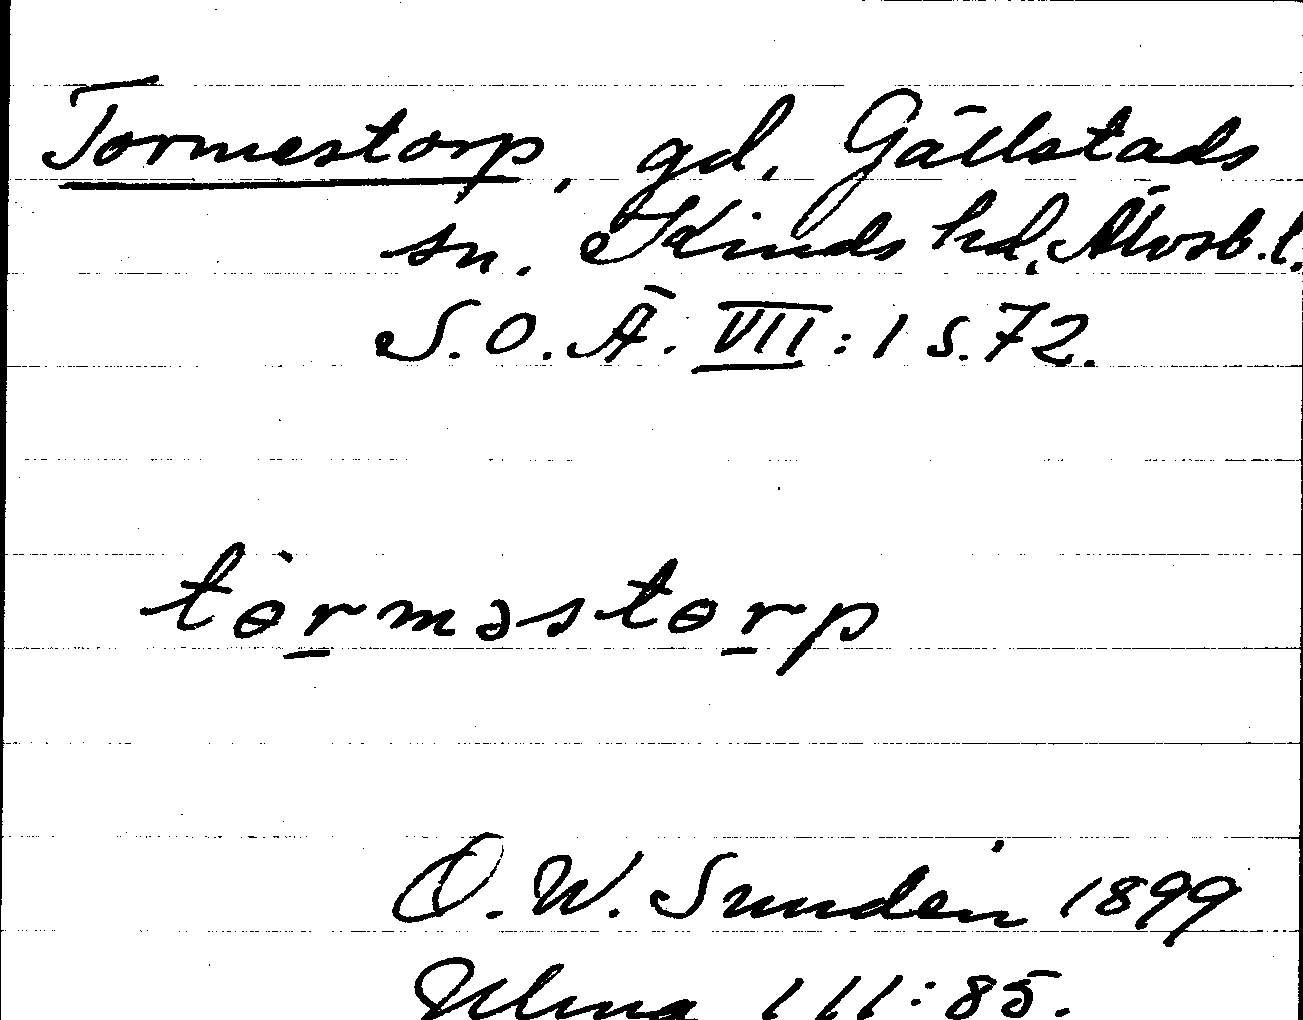 Tormestorp, gd, Gällstads
sn. Kinds hd, Älvsb. l.
S. O. Ä. VII: 1 s. 72.
tɵ̀rməstɵrp
O. W. Sundén 1899
Ulma 111:85.